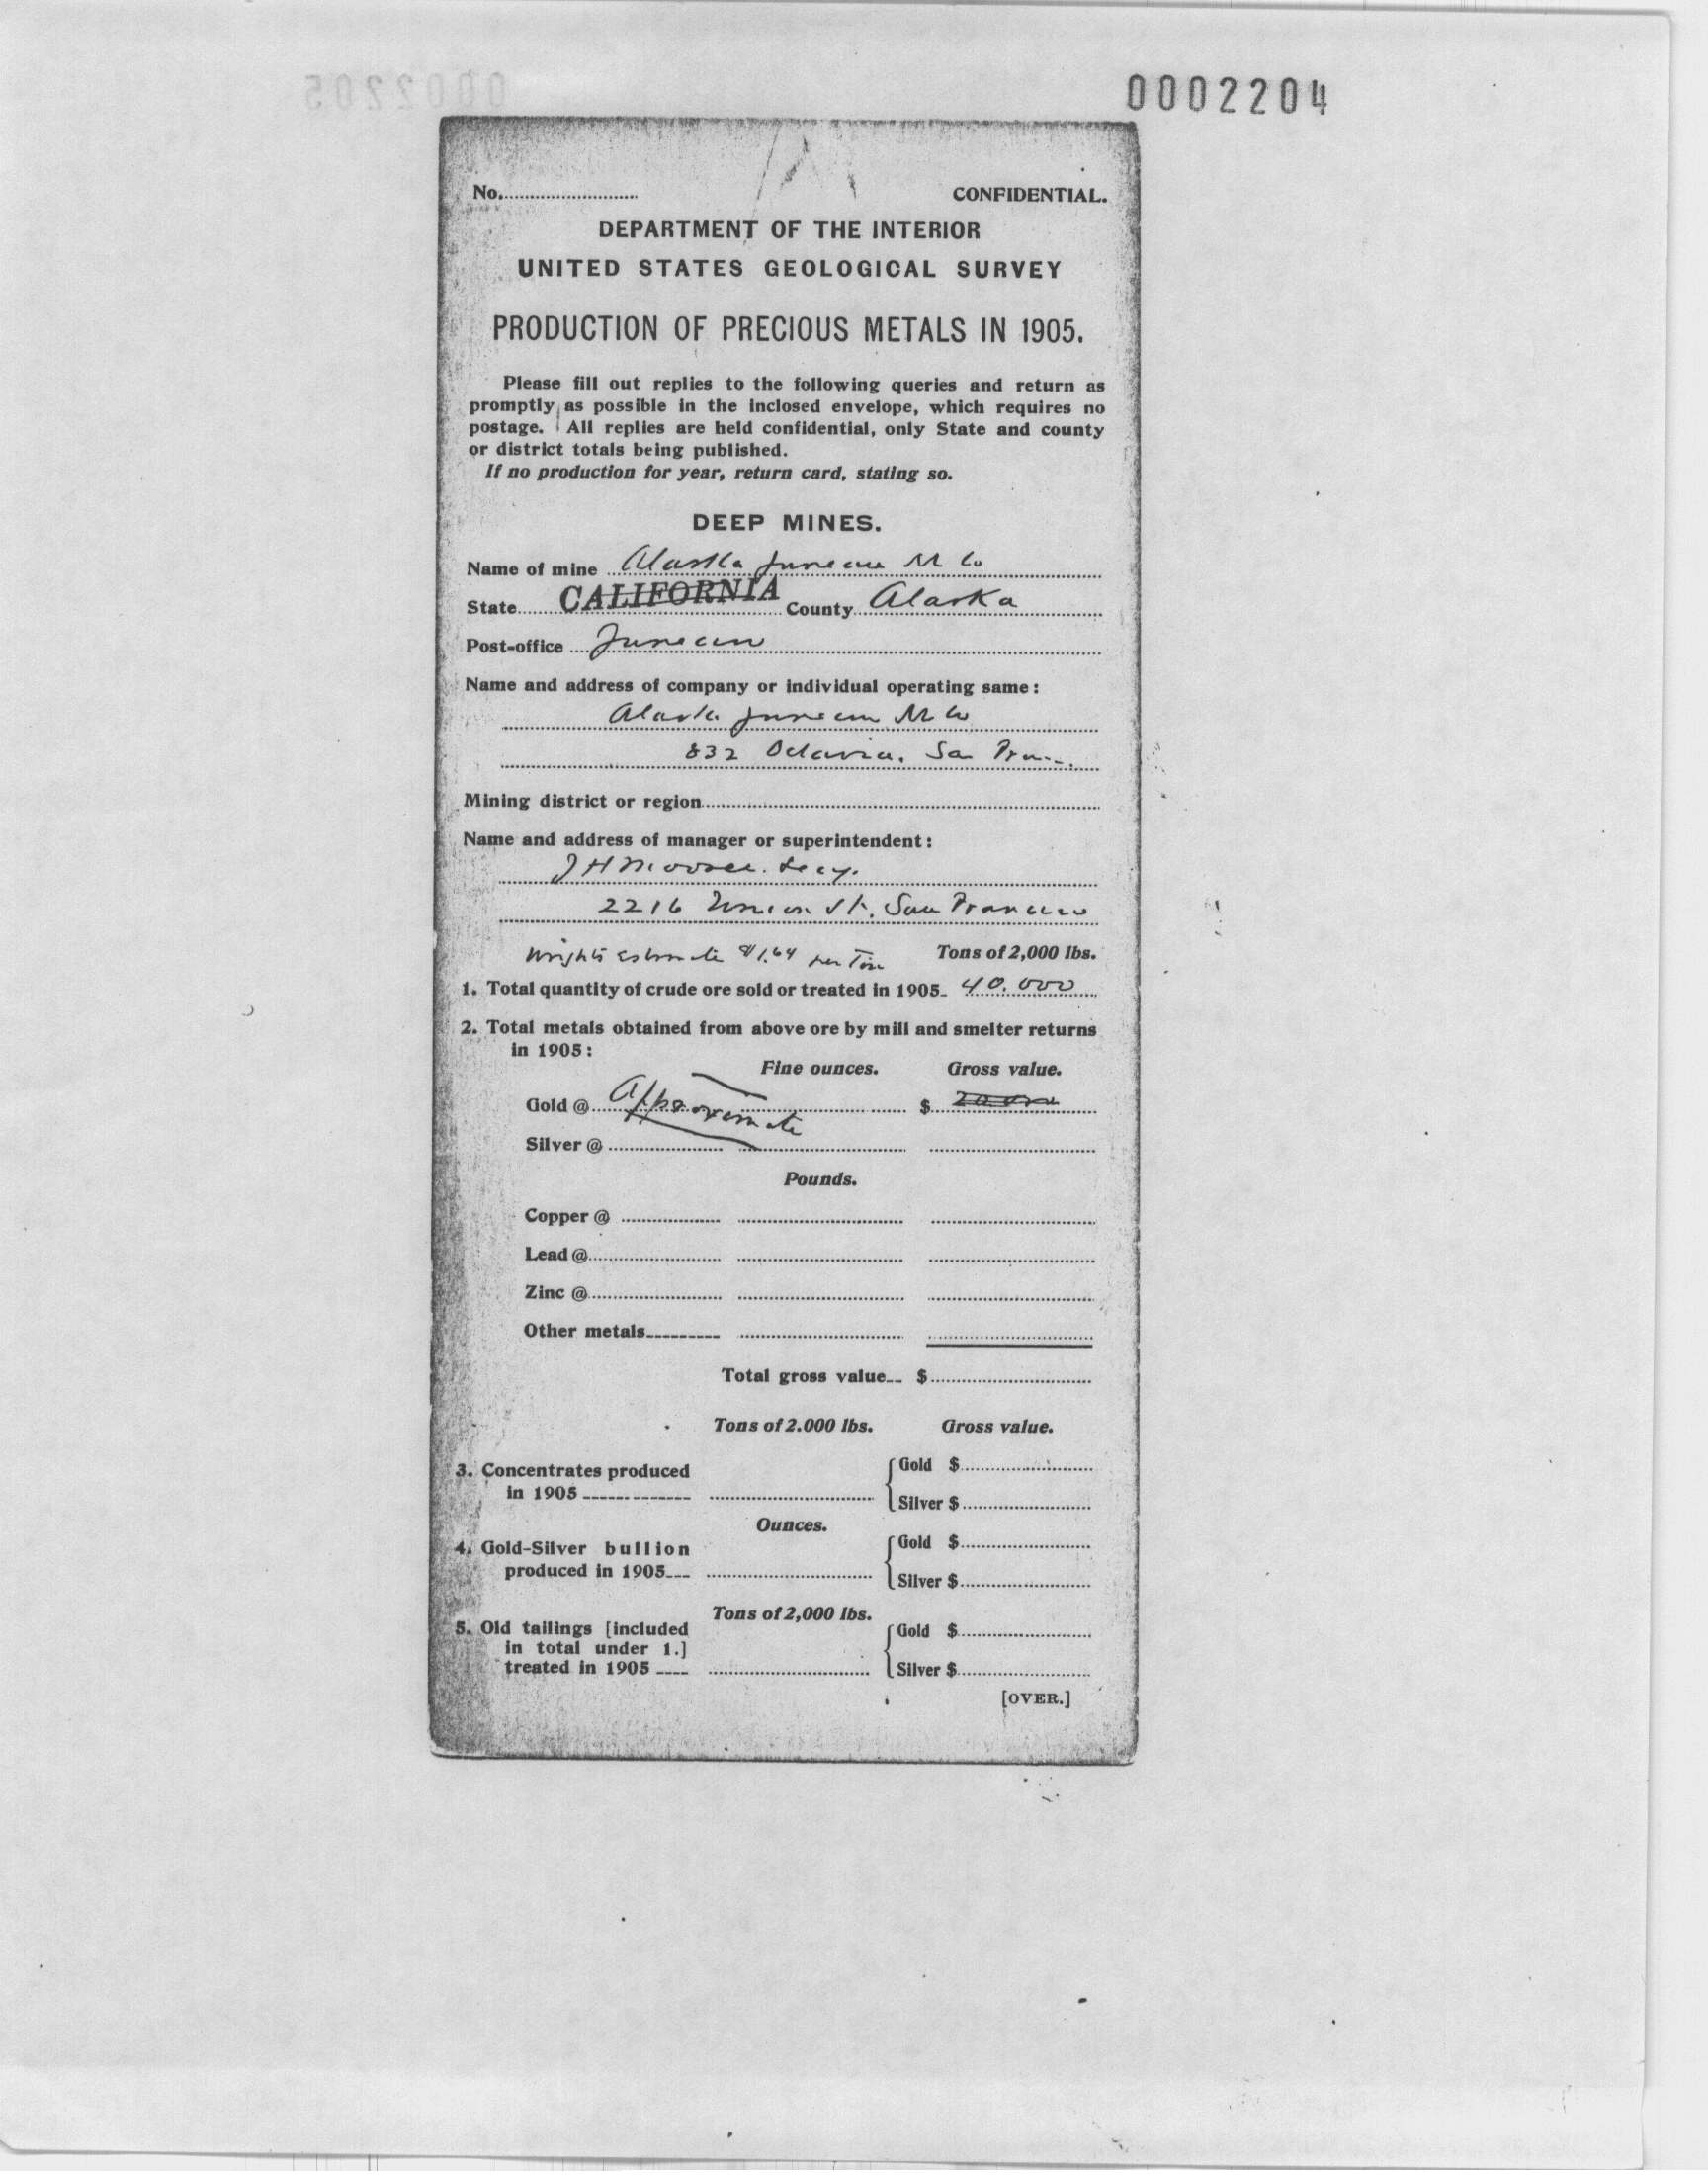 0002205
0002204
No. CONFIDENTIAL.
DEPARTMENT OF THE INTERIOR
UNITED STATES GEOLOGICAL SURVEY
PRODUCTION OF PRECIOUS METALS IN 1905.
Please fill out replies to the following queries and return as
promptly as possible in the inclosed envelope, which requires no
postage. All replies are held confidential, only State and county
or district totals being published.
If no production for year, return card, stating so.
DEEP MINES.
Name of mine Alaska Juneau M Co
State CALIFORNIA County Alaska
Post-office Juneau
Name and address of company or individual operating same:
Alaska Juneau M Co
832 Octavia, San Fran
Mining district or region
Name and address of manager or superintendent:
J H Secy.
2216 Union St. San Francisco
Wright's estimate $1.64 per Ton Tons of 2,000 lbs.
1. Total quantity of crude ore sold or treated in 1905. 40.000
2. Total metals obtained from above ore by mill and smelter returns
in 1905:
Fine ounces. Gross value.
Gold @ Approximate $
Silver @
Pounds.
Copper @
Lead @
Zinc @
Other metals
Total gross value $
Tons of 2.000 lbs. Gross value.
3. Concentrates produced Gold $
in 1905 Silver $
Ounces.
4. Gold-Silver bullion Gold $
produced in 1905 Silver $
Tons of 2,000 lbs.
5. Old tailings [included Gold $
in total under 1.]
treated in 1905 Silver $
[OVER.]